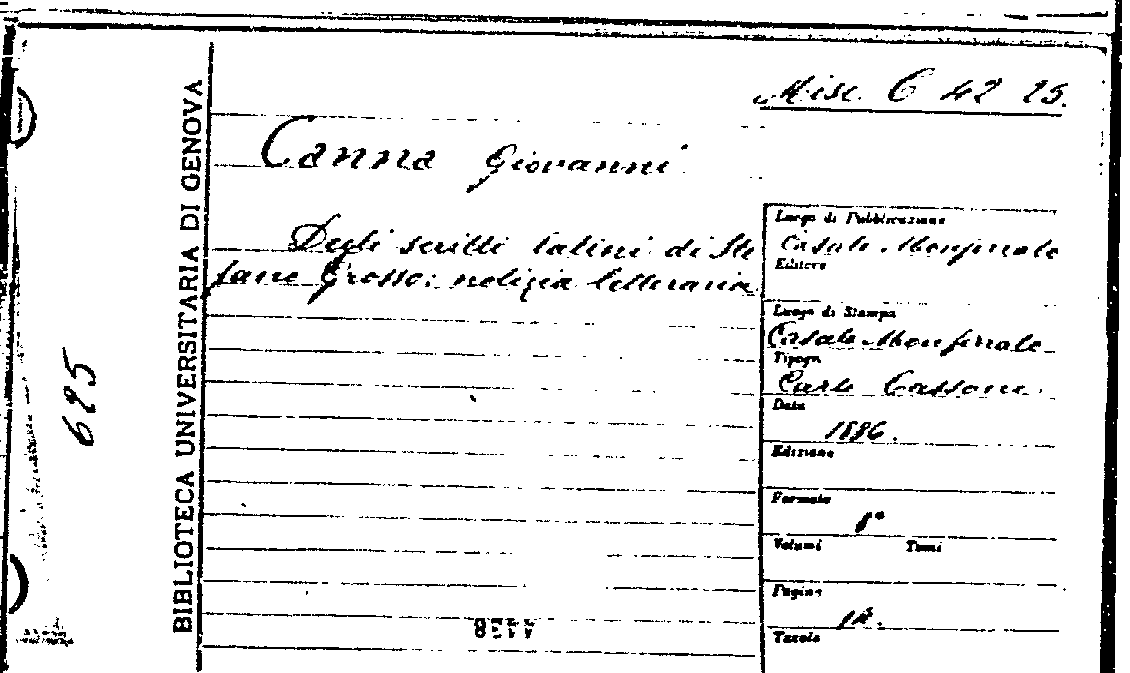 Misc. C 42 25.
Canna Giovanni
Degli scritti latini di Ste
fano Grosso: notizia letteraria
BIBLIOTECA UNIVERSITARIA DI GENOVA
625
Luogo di Pubblicazione
Casale Monferrato
Editore
Luogo di Stampa
Casale Monferrato
Tipogr.
Carlo Cassone.
Data
1886.
Edizione
Formato
8°
Volumi Tomi
Pagine
Tavole